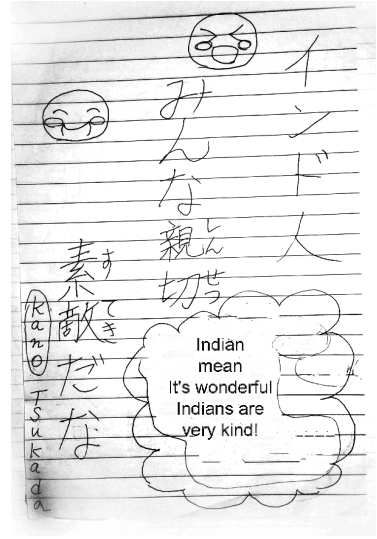 インド人
みんな親切
しんせつ
素敵だな
すてき
Kano Tsukada
Indian
mean
It's wonderful
Indians are
very kind!